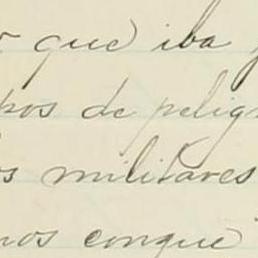 que iba
pos de pelig
os militares
nos conque